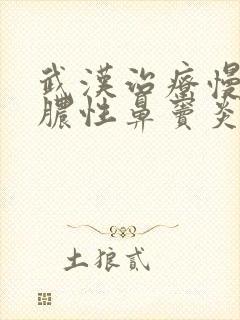 武漢治療慢
膿性鼻竇炎
土狼貳